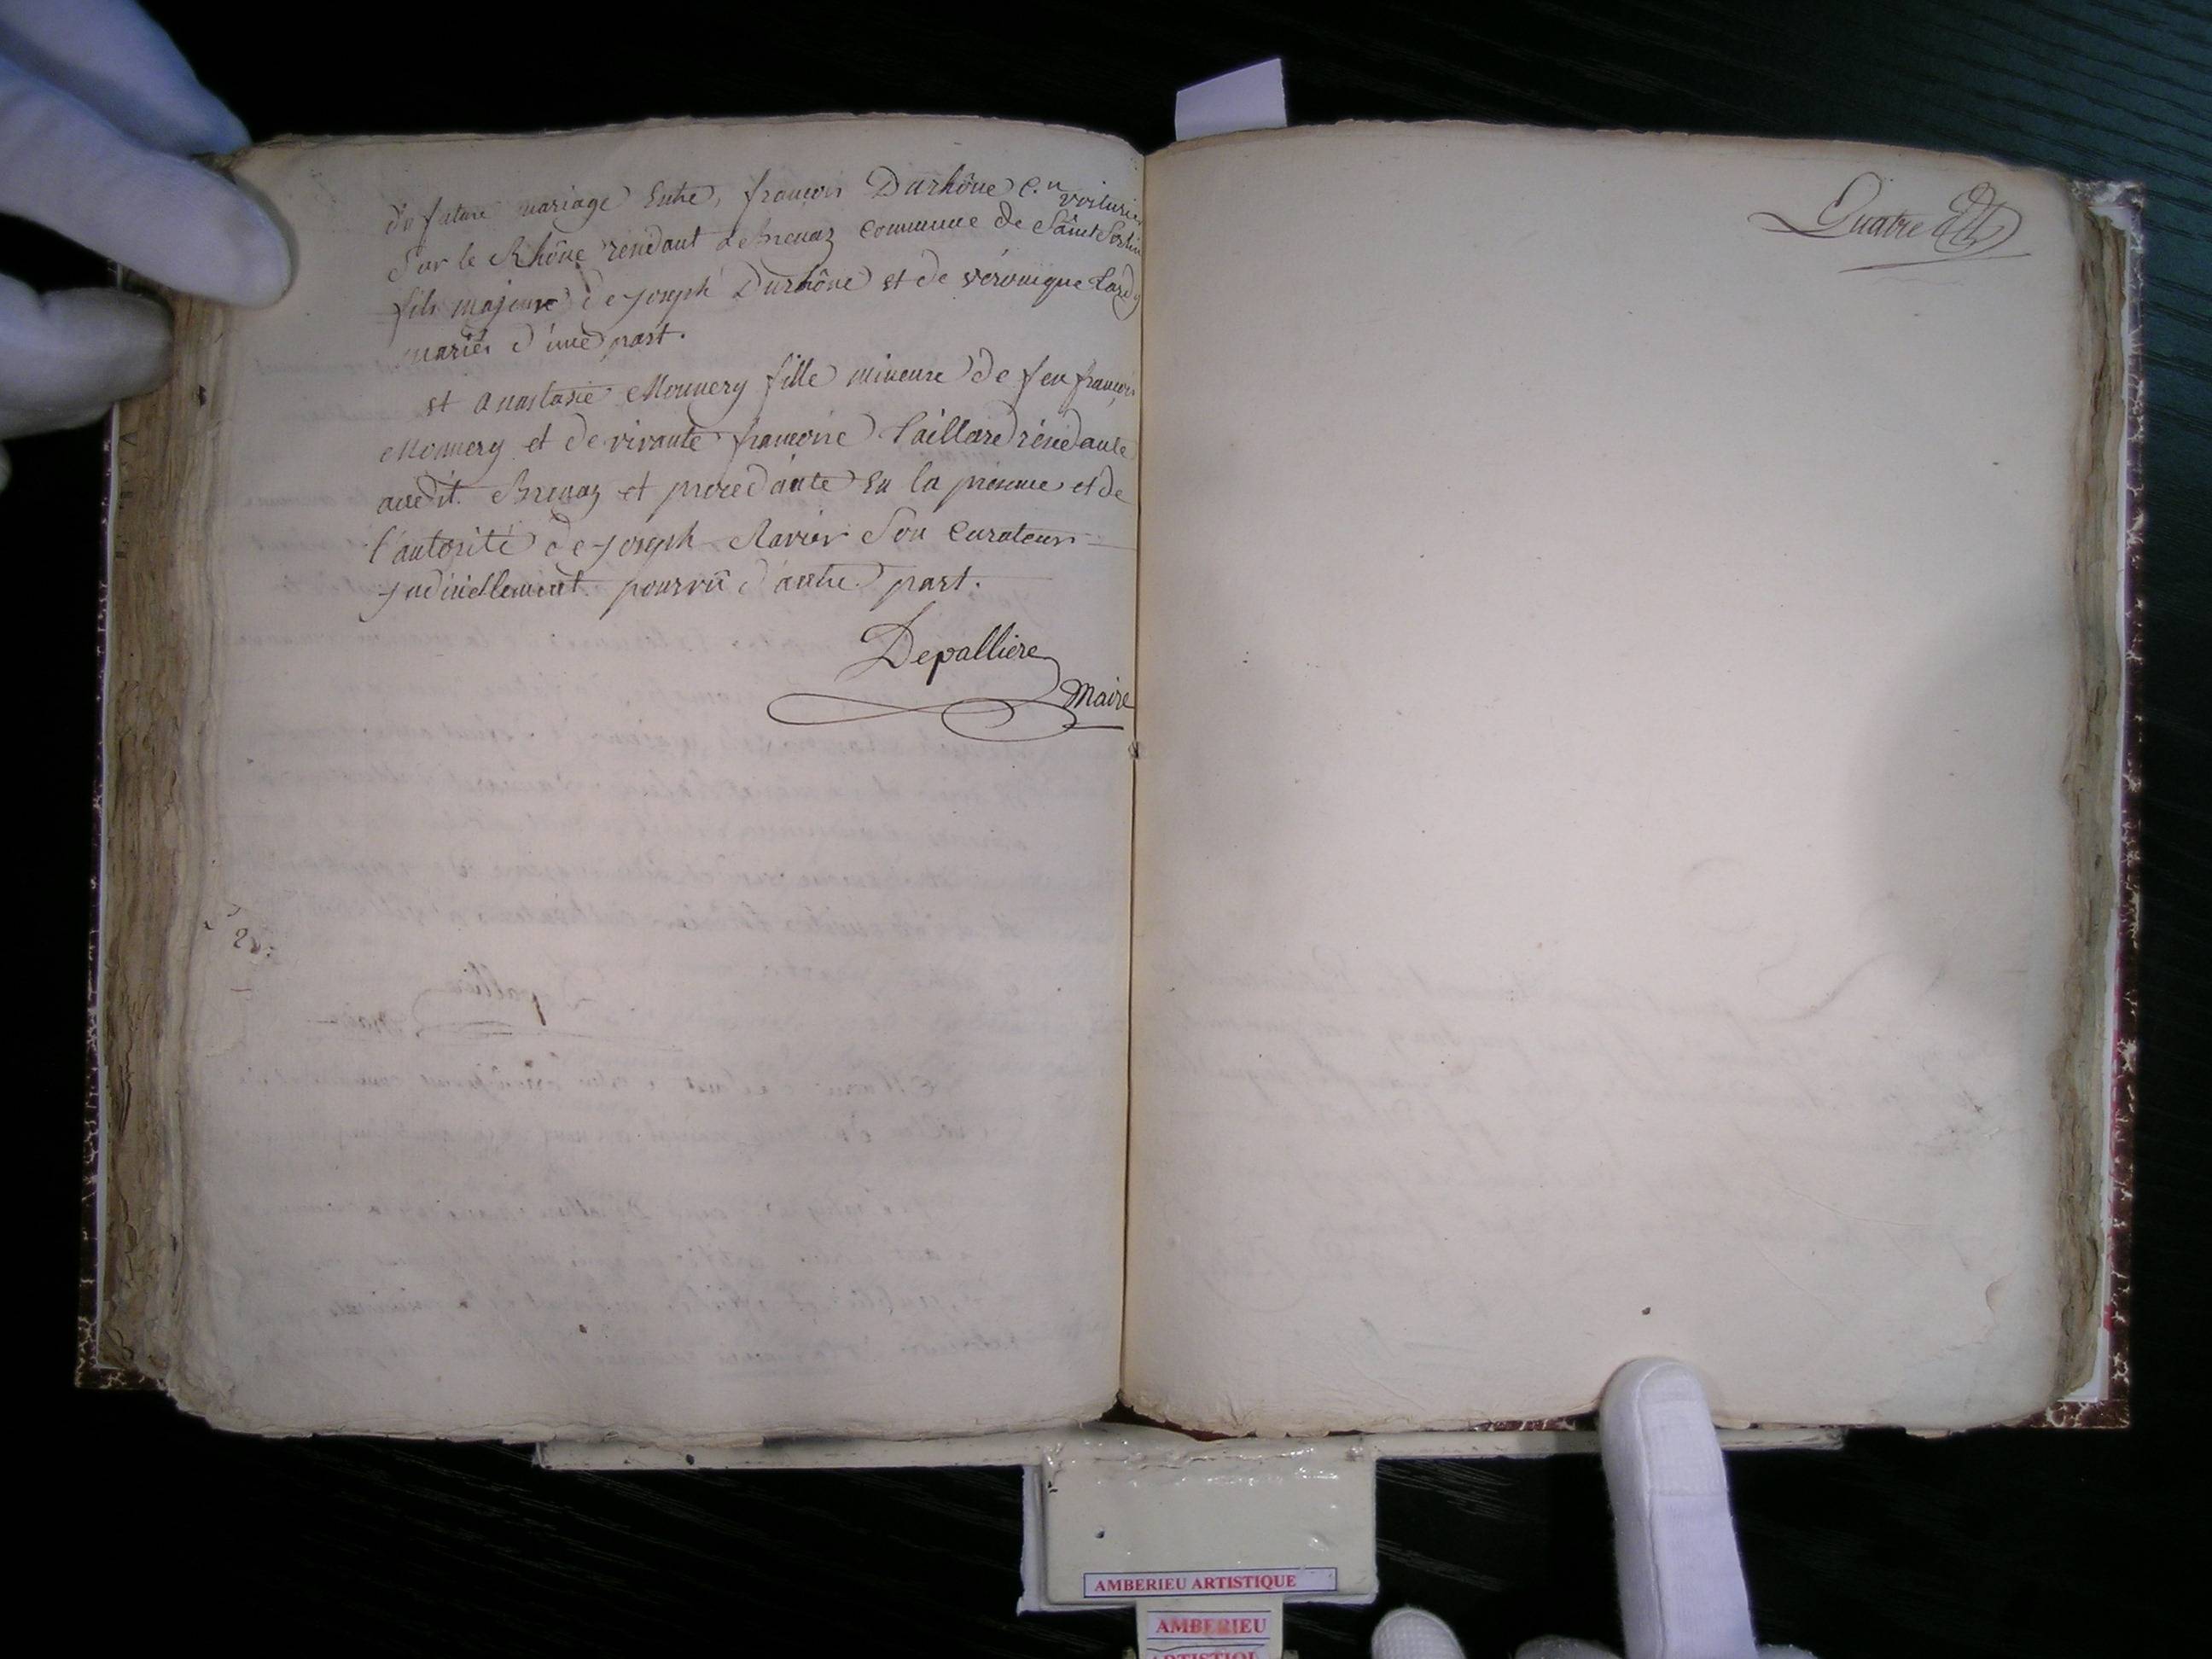 du future mariage Entre, françois Durhône C.en voiturier
Sur le Rhône résidant à Brenaz commune de Saint Sorlin
fils majeure de joseph Durhône et de véronique Lardy
mariés d'une part.
et anastasie Monnery fille mineure de feu françois
Monnery et de vivante françoise Taillard résidante
audit Brenaz et procedante En la présence et de
l'autorité de joseph Ravier Son Curateur
judiciellement pourvû d'autre part.
Depalliere
Maire
Quatre
AMBERIEU ARTISTIQUE
AMBERIEU
ARTISTIQUE